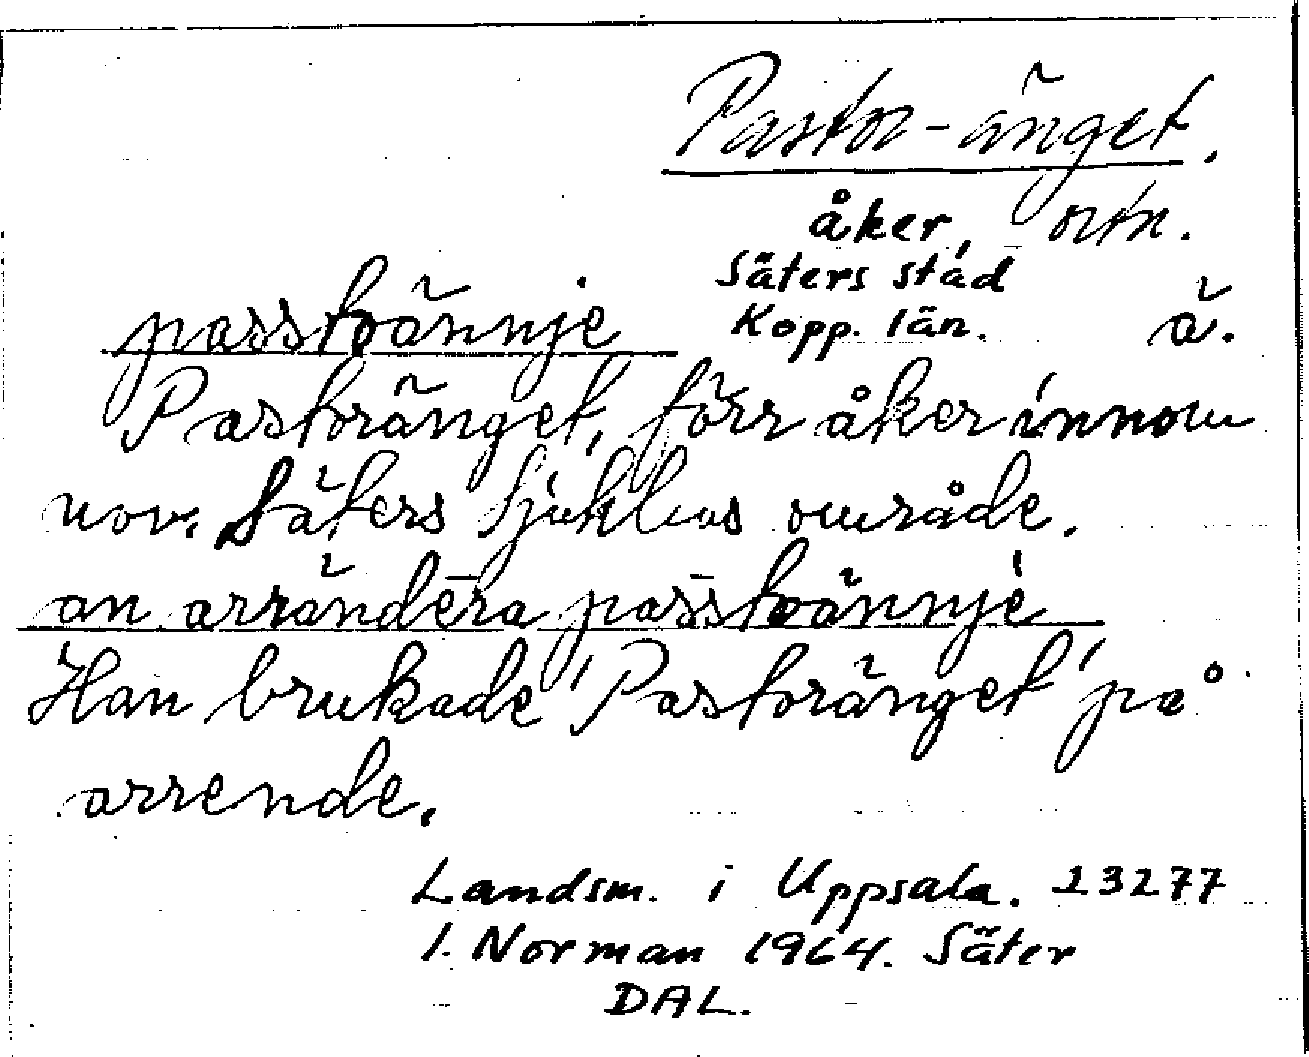 Pastor-änget.
åker, ortn.
Säters stad
passtoännje Kopp. län. ä.
Pastoränget, förr åker innom
nov. Säters Sjukhus område.
an arrändēra passtoännje
Han brukade Pastoränget på
arrende.
Landsm. i Uppsala. 23277
I. Norman 1964. Säter
DAL.